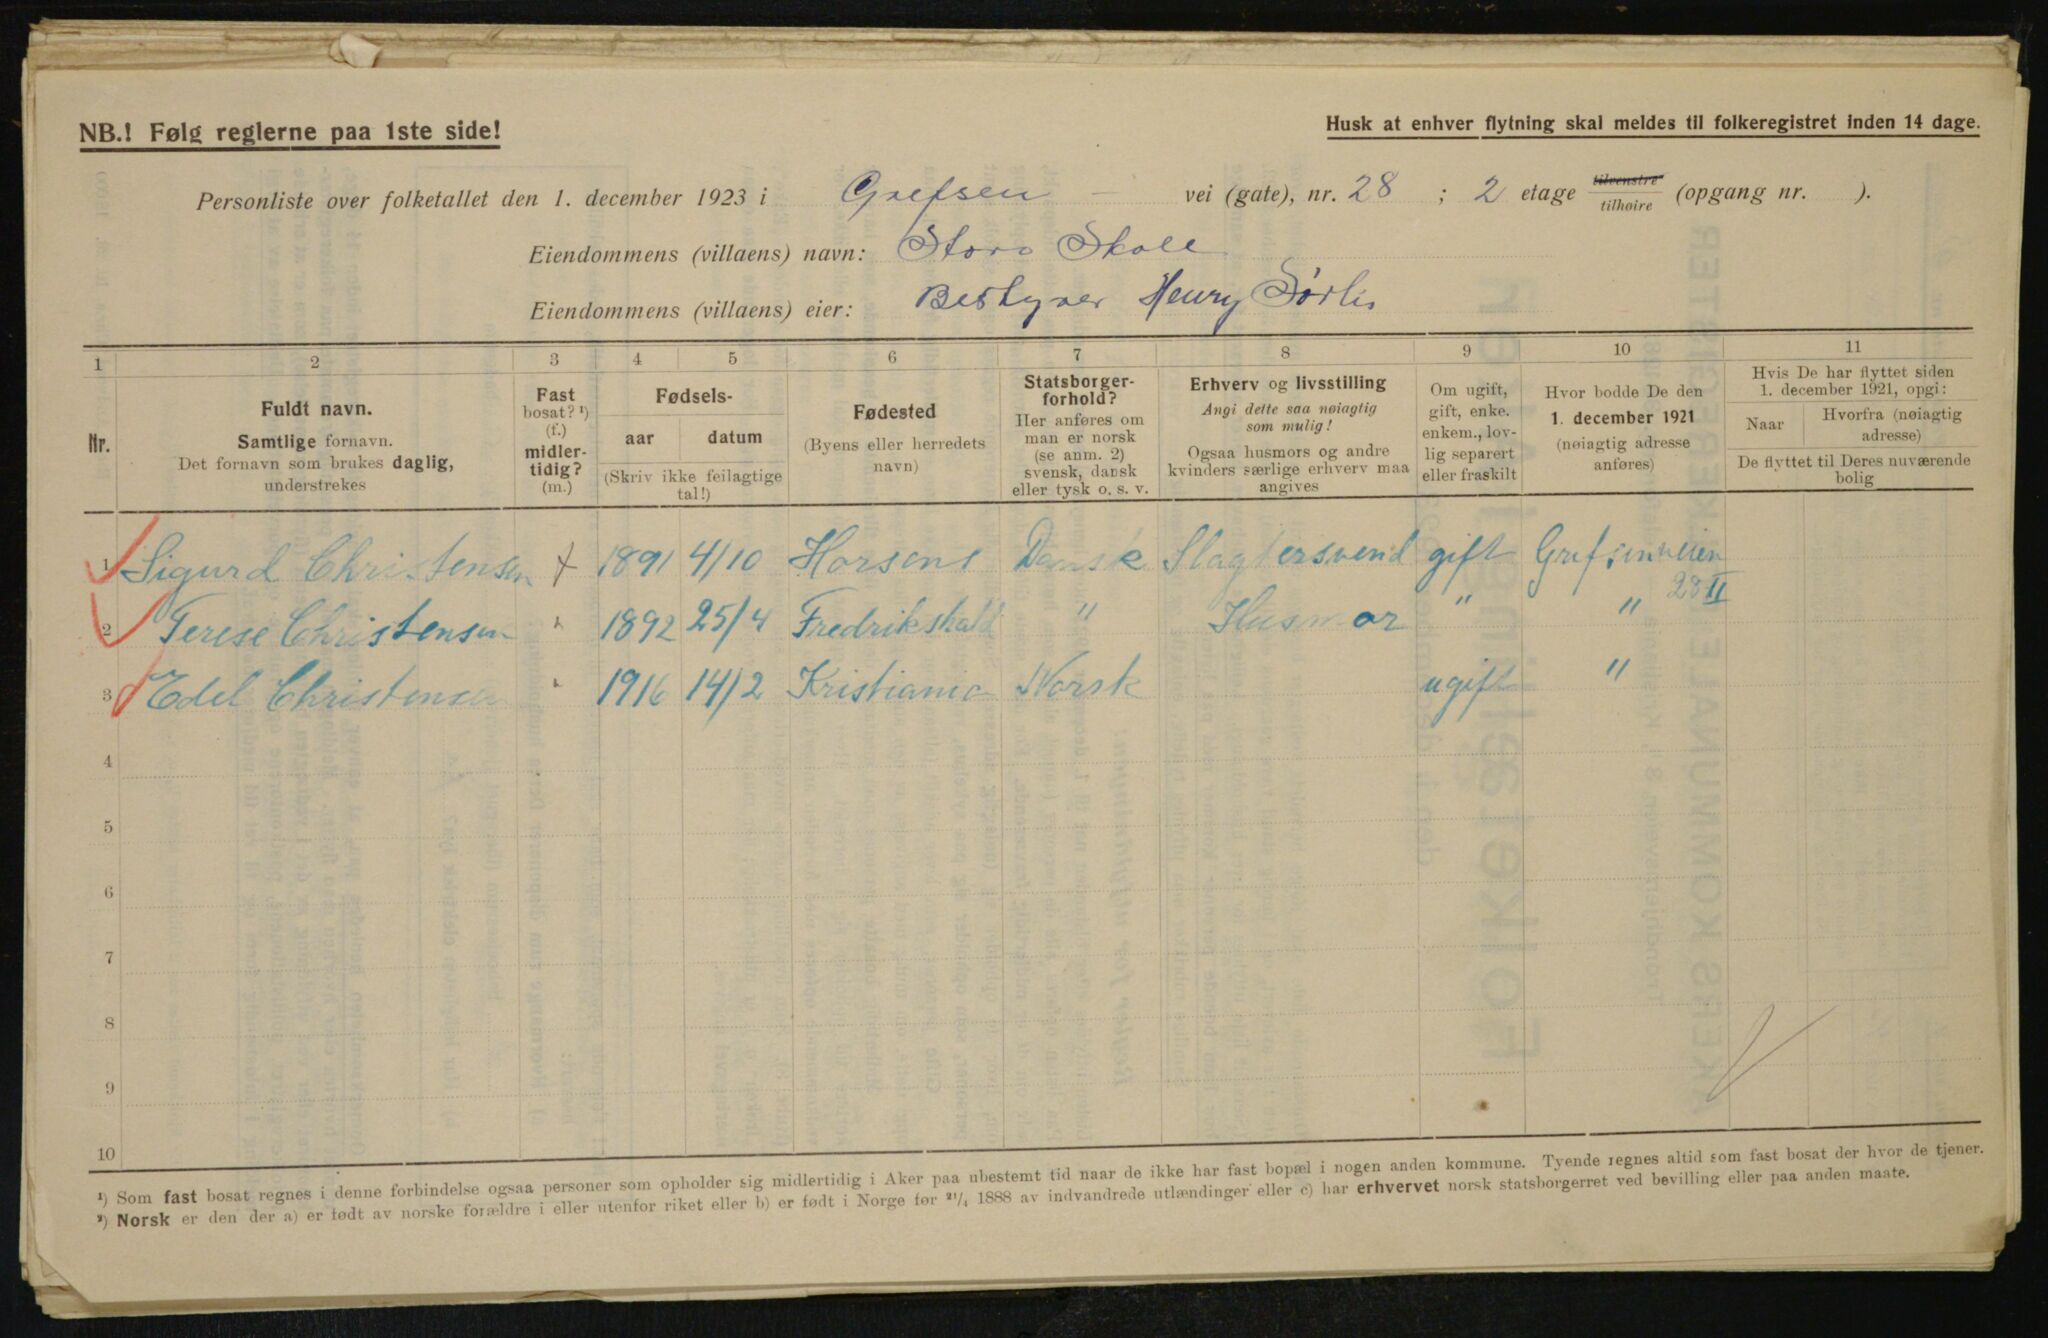 NB.! Følg reglerne paa 1ste side!
Husk at enhver flytning skal meldes til folkeregistret inden 14 dage.
Personliste over folketallet den 1. december 1923 i Grefsen – vei (gate), nr. 28 ; 2 etage tilvenstre tilhøire (opgang nr. ).
Eiendommens (villaens) navn: Storo Skole
Eiendommens (villaens) eier: Bestyrer Henry Sørlis
1 2 3 4 5 6 7 8 9 10 11
Nr.
Fuldt navn.
Samtlige fornavn.
Det fornavn som brukes daglig,
understrekes
Fast
bosat? ¹)
(f.)
midler-
tidig?
(m.)
Fødsels-
aar datum
(Skriv ikke feilagtige
tal!)
Fødested
(Byens eller herredets
navn)
Statsborger-
forhold?
Her anføres om
man er norsk
(se anm. 2)
svensk, dansk
eller tysk o. s. v.
Erhverv og livsstilling
Angi dette saa nøiagtig
som mulig!
Ogsaa husmors og andre
kvinders særlige erhverv maa
angives
Om ugift,
gift, enke.
enkem., lov-
lig separert
eller fraskilt
Hvor bodde De den
1. december 1921
(nøiagtig adresse
anføres)
Hvis De har flyttet siden
1. december 1921, opgi:
Naar
Hvorfra (nøiagtig
adresse)
De flyttet til Deres nuværende
bolig
1 Sigurd Christensen f 1891 4/10 Horsens Dansk Slagtersvend gift Grefsenveien
28 II
2 Terese Christensen " 1892 25/4 Fredrikshald " Husmor " "
3 Edel Christensen " 1916 14/2 Kristiania Norsk ugift "
4
5
6
7
8
9
10
¹) Som fast bosat regnes i denne forbindelse ogsaa personer som opholder sig midlertidig i Aker paa ubestemt tid naar de ikke har fast bopæl i nogen anden kommune. Tyende regnes altid som fast bosat der hvor de tjener.
²) Norsk er den der a) er født av norske forældre i eller utenfor riket eller b) er født i Norge før ²¹/₄ 1888 av indvandrede utlændinger eller c) har erhvervet norsk statsborgerret ved bevilling eller paa anden maate.